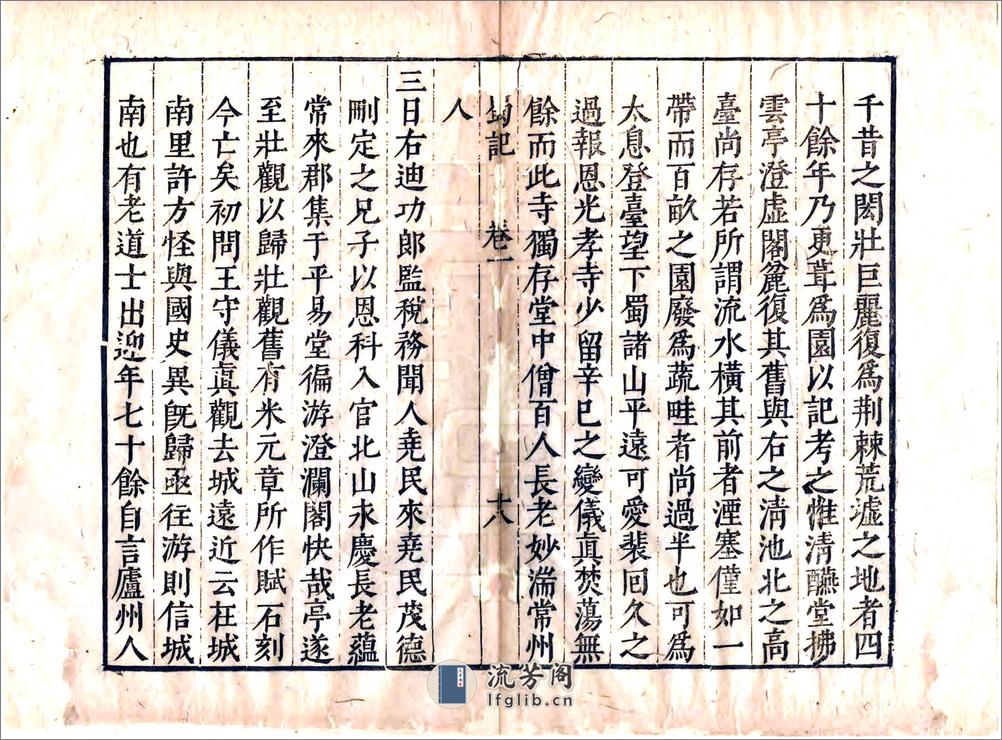 千昔之閎壯巨麗復爲荆棘荒墟之地者四
十餘年乃更葺爲園以記考之惟清醼堂拂
雲亭澄虛閣麄復其舊與右之清池北之高
臺尚存若所謂流水橫其前者湮塞僅如一
帶而百畝之園廢爲蔬畦者尚過半也可爲
太息登臺望下蜀諸山平遠可愛裴回久之
過報恩光孝寺少留辛巳之變儀真焚蕩無
餘而此寺獨存堂中僧百人長老妙湍常州
人
蜀記 卷一 十八
三日右迪功郎監稅務聞人堯民來堯民茂德
刪定之兄子以恩科入官北山永慶長老蘊
常來郡集于平易堂徧游澄瀾閣快哉亭遂
至壯觀以歸壯觀舊有米元章所作賦石刻
今亡矣初問王守儀眞觀去城遠近云在城
南里許方怪與國史異旣歸亟往游則信城
南也有老道士出迎年七十餘自言廬州人
流芳阁
lfglib.cn